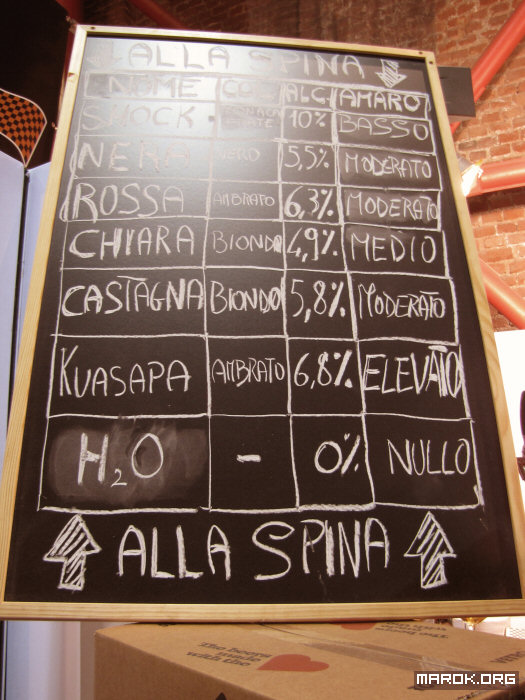 ALLA SPINA
NOME ALC AMARO
SMOCK 10% BASSO
NERA NERO 5,5% MODERATO
ROSSA AMBRATO 6,3% MODERATO
CHIARA BIONDO 4,9% MEDIO
CASTAGNA BIONDO 5,8% MODERATO
KUASAPA AMBRATO 6,8% ELEVATO
H₂O - 0% NULLO
ALLA SPINA
The beers
made
with the
MAROK.ORG